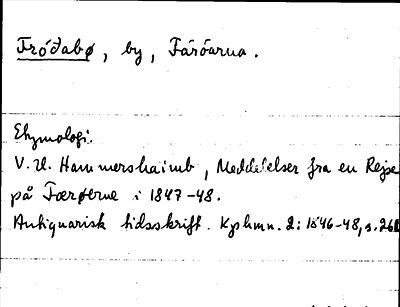 Fróðabø, by, Färöarna.
Etymologi.
V. U. Hammershaimb, Meddelelser fra en Rejse
på Færøerne i 1847-48.
Antiquarisk tidsskrift. Kphmn. 2: 1846-48, s. 261